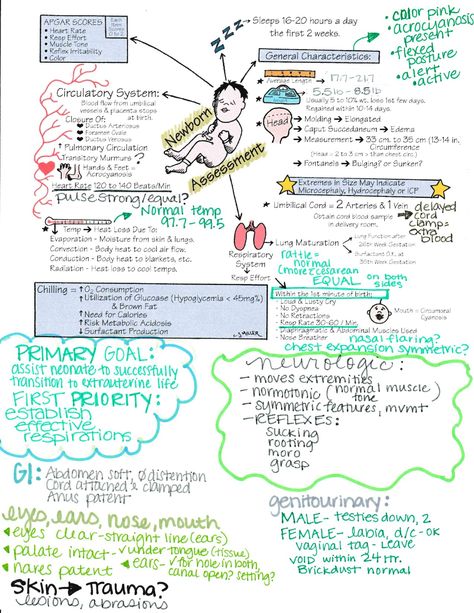 APGAR SCORES
• Heart Rate
• Resp Effort
• Muscle Tone
• Reflex Irritability
• Color
Each Item Scored 0 to 2
Sleeps 16-20 hours a day
the first 2 weeks.
• color pink
• acrocyanosis
present
• flexed
posture
• alert
• active
General Characteristics:
Average Length = 17.7-21.7
5.5lb - 8.5lb
Usually 5 to 10% wt. loss first few days.
Regained within 10-14 days.
Head
Molding → Elongated
Caput Succedaneum → Edema
Measurement → 33 cm. to 35 cm (13-14 in.
Circumference
(Head = 2 to 3 cm > than chest circ)
Fontanels → Bulging? or Sunken?
Extremes in Size May Indicate
Microcephaly, Hydrocephaly or ICP
Umbilical Cord = 2 Arteries & 1 Vein
Obtain cord blood sample
in delivery room.
delayed
cord
clamp=
extra
blood
Newborn
Assessment
Circulatory System:
Blood flow from umbilical
vessels & placenta stops
at birth.
Closure Of:
Ductus Arteriosus
Foramen Ovale
Ductus Venosus
↑ Pulmonary Circulation
Transitory Murmurs ?
Hands & Feet =
Acrocyanosis
Heart Rate 120 to 140 Beats/Min
pulse strong/equal?
Normal temp
97.7-99.5
↓ Temp → Heat Loss Due To:
Evaporation - Moisture from skin & lungs.
Convection - Body heat to cool air flow.
Conduction - Body heat to blankets, etc.
Radiation - Heat loss to cool temps.
Respiratory
System
Resp Effort
Lung Maturation
rattle =
normal
(more c cesarean
EQUAL on both
sides
Within the 1st minute of birth:
Loud & Lusty Cry
No Dyspnea
No Retractions
Resp Rate 30-60 / Min.
Diaphragmatic & Abdominal Muscles Used
Nose Breather
Mouth = Circumoral
Cyanosis
nasal flaring?
chest expansion symmetric?
Chilling = ↑ O2 Consumption
↑ Utilization of Glucose (Hypoglycemia < 45mg%)
& Brown Fat
↑ Need for Calories
↑ Risk Metabolic Acidosis
↓ Surfactant Production
PRIMARY GOAL:
assist neonate to successfully
transition to extrauterine life
FIRST PRIORITY:
establish
effective
respirations
neurologic:
- moves extremities
- normotonic (normal muscle
tone
- symmetric features, mvmt
- REFLEXES:
sucking
rooting
moro
grasp
GI: Abdomen soft, Ø distention
Cord attached & clamped
Anus patent
eyes, ears, nose, mouth
eyes clear-straight line (ears)
palate intact - ✓ under tongue (tissue)
nares patent
ears - ✓ for hole in both,
canal open? setting?
skin → Trauma?
lesions, abrasions
genitourinary:
MALE - testies down, 2
FEMALE - labia, d/c - OK
vaginal tag - leave
void within 24 Hr.
Brickdust normal